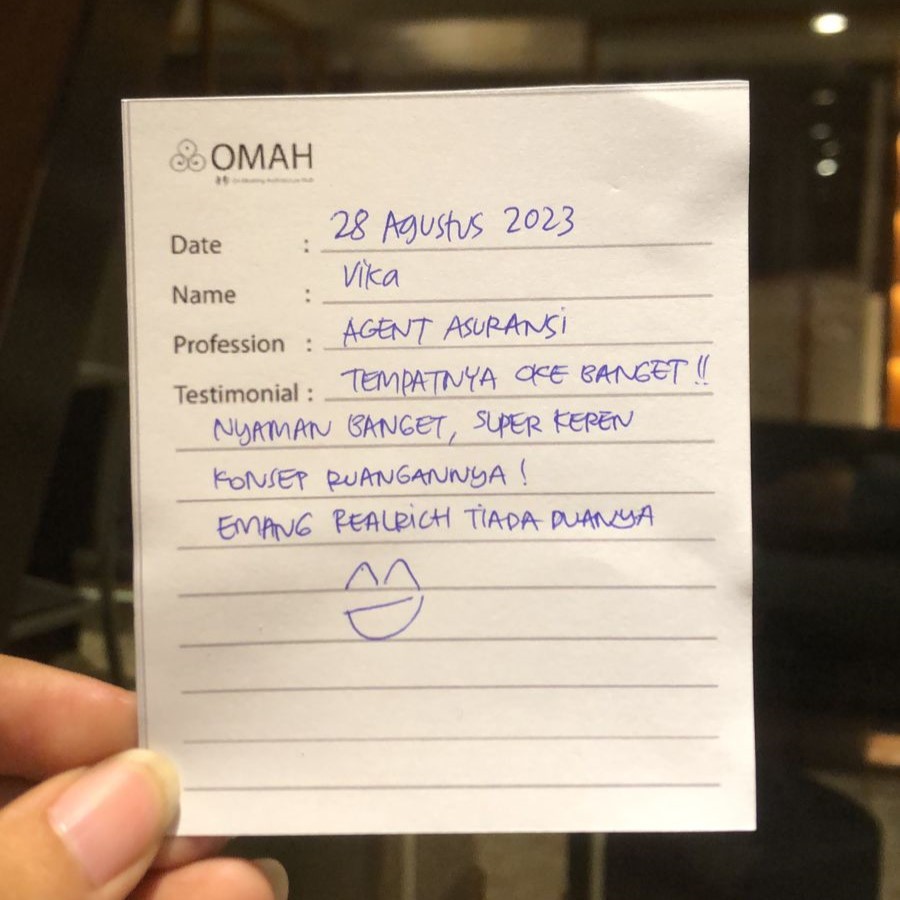 OMAH
Date : 28 Agustus 2023
Name : Vika
Profession : AGENT ASURANSi
Testimonial : TEMPATNYA OKE BANGET !!
NYAMAN BANGET, SUPER KEREN
KONSEP RUANGANNYA !
EMANG REALRICH TIADA DUANYA